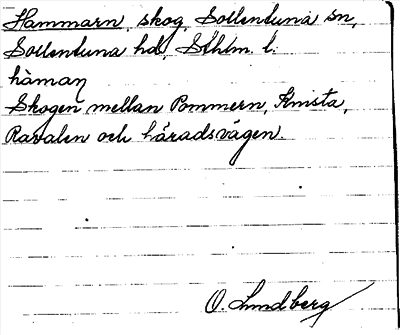 Hammarn, skog, Sollentuna sn,
Sollentuna hd, Sthlm. l.
håmaɳ
Skogen mellan Pommern, Knista,
Ravalen och häradsvägen.
O. Lundberg